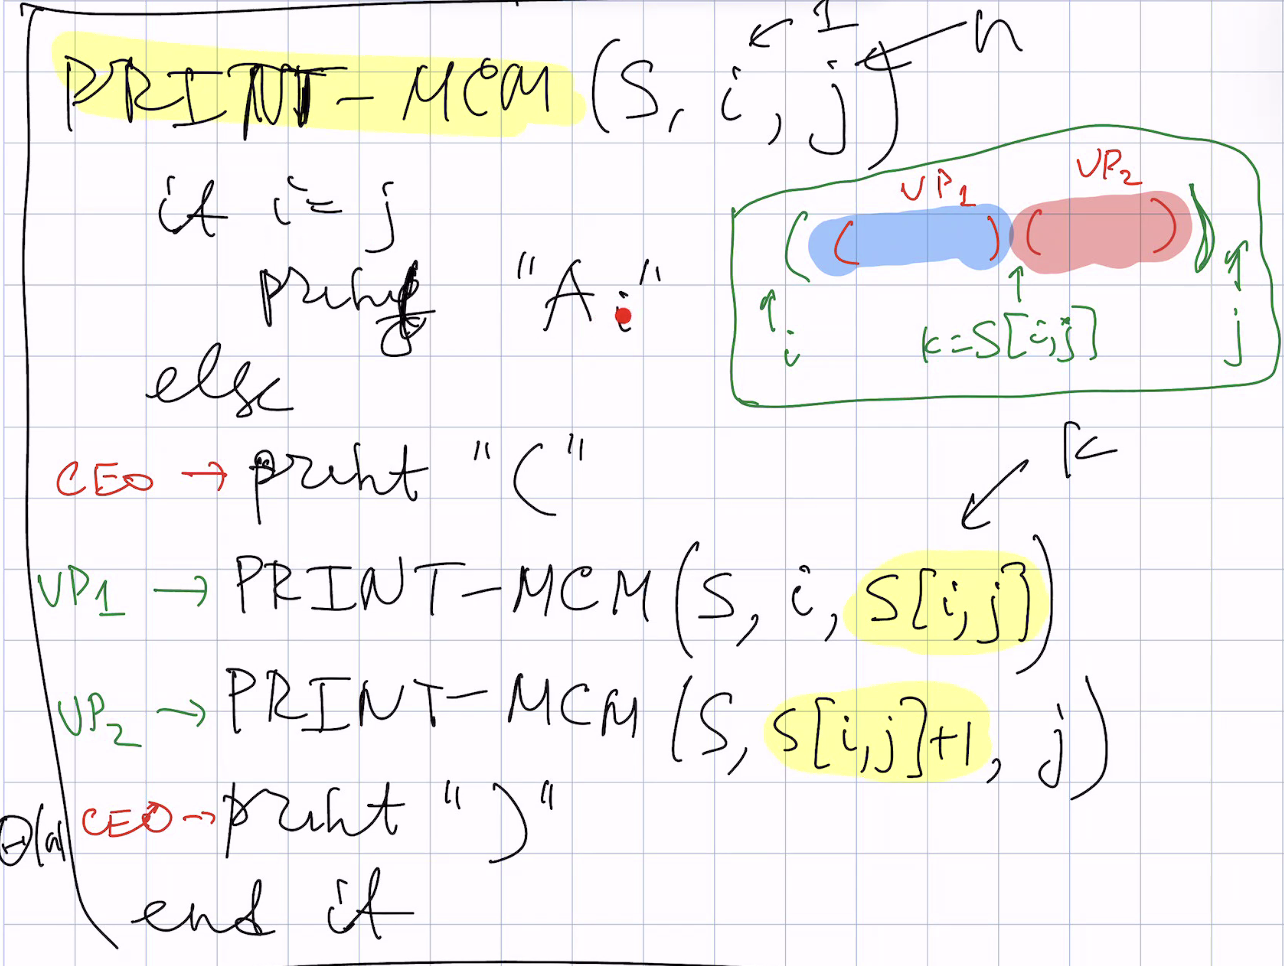 1
n
PRINT-MCM (S, i, j)
if i = j
print "Ai"
else
CEO → print "("
VP1 → PRINT-MCM (S, i, S[i,j])
VP2 → PRINT-MCM (S, S[i,j]+1, j)
CEO → print ")"
end if
VP1 VP2
( ( ) ( ) )
i k=S[i,j] j
k